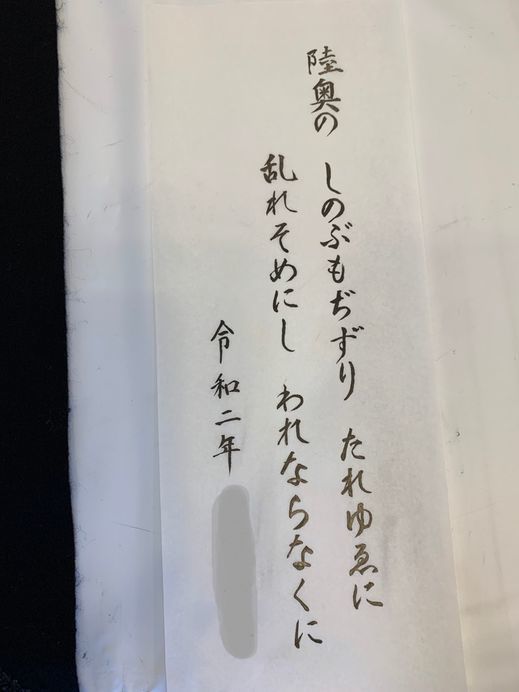 陸奥の しのぶもぢずり たれゆゑに
乱れそめにし われならなくに
令和二年